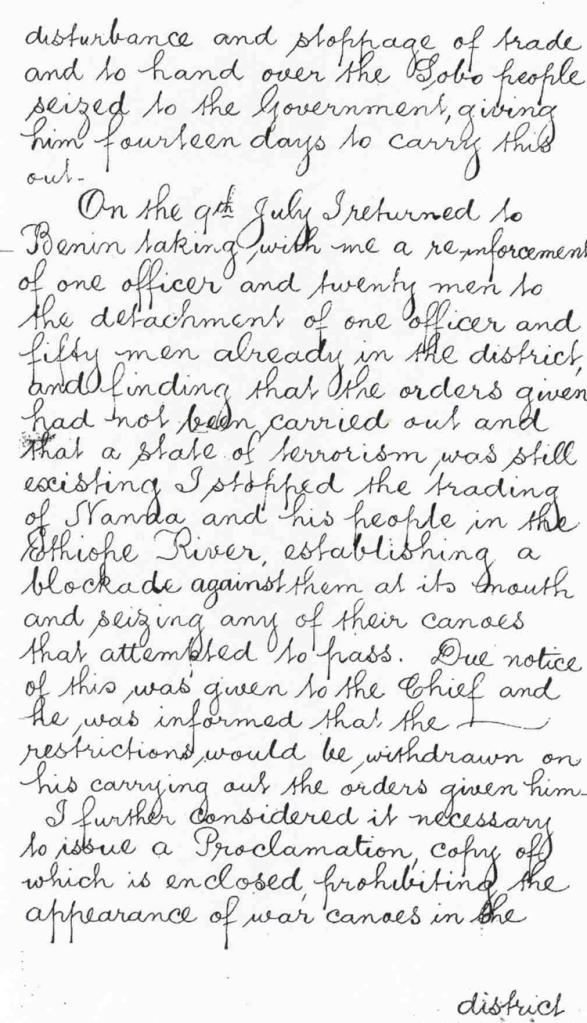 disturbance and stoppage of trade
and to hand over the Sobo people
seized to the Government, giving
him fourteen days to carry this
out.
On the 9th July I returned to
Benin taking with me a re-inforcement
of one officer and twenty men to
the detachment of one officer and
fifty men already in the district,
and finding that the orders given
had not been carried out and
that a state of terrorism was still
existing I stopped the trading
of Nanna and his people in the
Ethiope River, establishing a
blockade against them at its mouth
and seizing any of their canoes
that attempted to pass. Due notice
of this was given to the Chief and
he was informed that the
restrictions would be withdrawn on
his carrying out the orders given him.
I further considered it necessary
to issue a Proclamation, copy of
which is enclosed, prohibiting the
appearance of war canoes in the
district